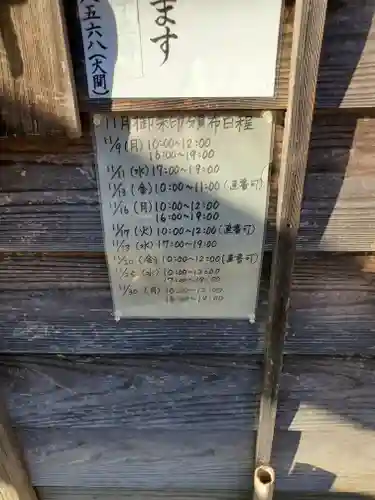 五六八(大間)
ます
11月御朱印頒布日程
11/9(月) 10:00~12:00
16:00~19:00
11/11(水) 17:00~19:00
11/13(金) 10:00~11:00(直書可)
11/16(月) 10:00~12:00
16:00~19:00
11/17(火) 10:00~12:00(直書可)
11/18(水) 17:00~19:00
11/20(金) 10:00~12:00(直書可)
11/25(水) 10:00~12:00
17:00~19:00
11/30(月) 10:00~12:00
16:00~19:00